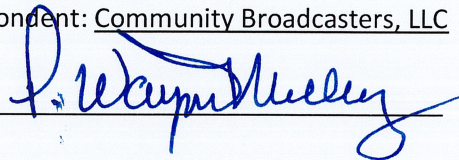 ondent: Community Broadcasters, LLC
P. Wayne Mulling